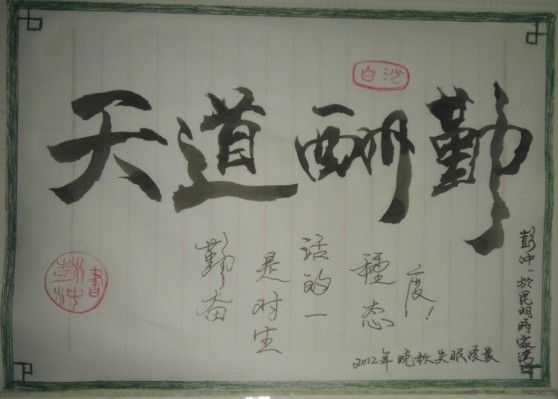 天道酬勤
白沙
勤奋
是对生
活的一
種态
度!
2012年晚秋失眠凌晨
彭冲於昆明